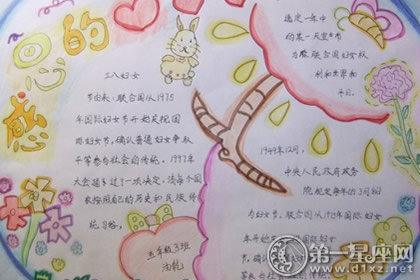 感恩的
三八妇女
节由来：联合国从1975
年国际妇女节开始庆祝国
际妇女节，确认普通妇女争取
平等参与社会的传统。1997年
大会通过了一项决议，请每个国
家按照自己的历史和民族传
统习俗，
五年级3班
选定一年中
的某一天宣布
为联合国妇女权
利和世界和
平日。
1949年12月，
中央人民政府政务
院规定每年的3月8日
为妇女节。联合国从1975年国际妇女
年开始
节，确认
第一星座网
www.d1xz.net